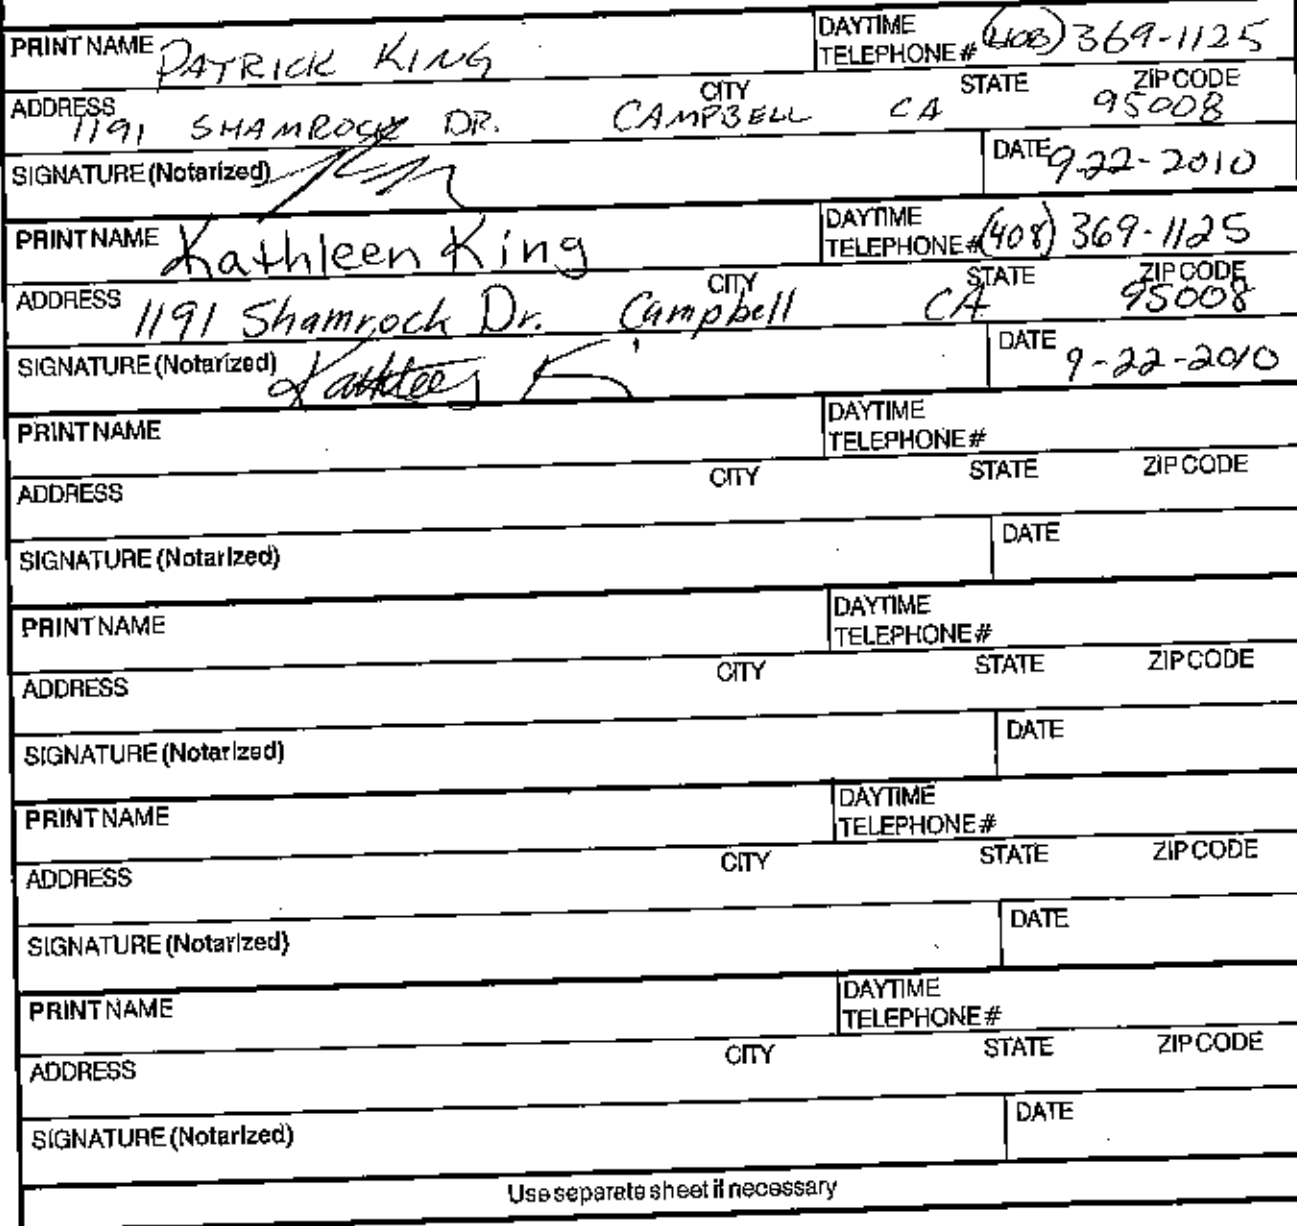 PRINT NAME PATRICK KING DAYTIME TELEPHONE # (408) 369-1125
ADDRESS 1191 SHAMROCK DR. CITY CAMPBELL STATE CA ZIP CODE 95008
SIGNATURE (Notarized) DATE 9-22-2010
PRINT NAME Kathleen King DAYTIME TELEPHONE # (408) 369-1125
ADDRESS 1191 Shamrock Dr. CITY Campbell STATE CA ZIP CODE 95008
SIGNATURE (Notarized) Kathleen K DATE 9-22-2010
PRINT NAME DAYTIME TELEPHONE #
ADDRESS CITY STATE ZIP CODE
SIGNATURE (Notarized) DATE
PRINT NAME DAYTIME TELEPHONE #
ADDRESS CITY STATE ZIP CODE
SIGNATURE (Notarized) DATE
PRINT NAME DAYTIME TELEPHONE #
ADDRESS CITY STATE ZIP CODE
SIGNATURE (Notarized) DATE
PRINT NAME DAYTIME TELEPHONE #
ADDRESS CITY STATE ZIP CODE
SIGNATURE (Notarized) DATE
Use separate sheet if necessary